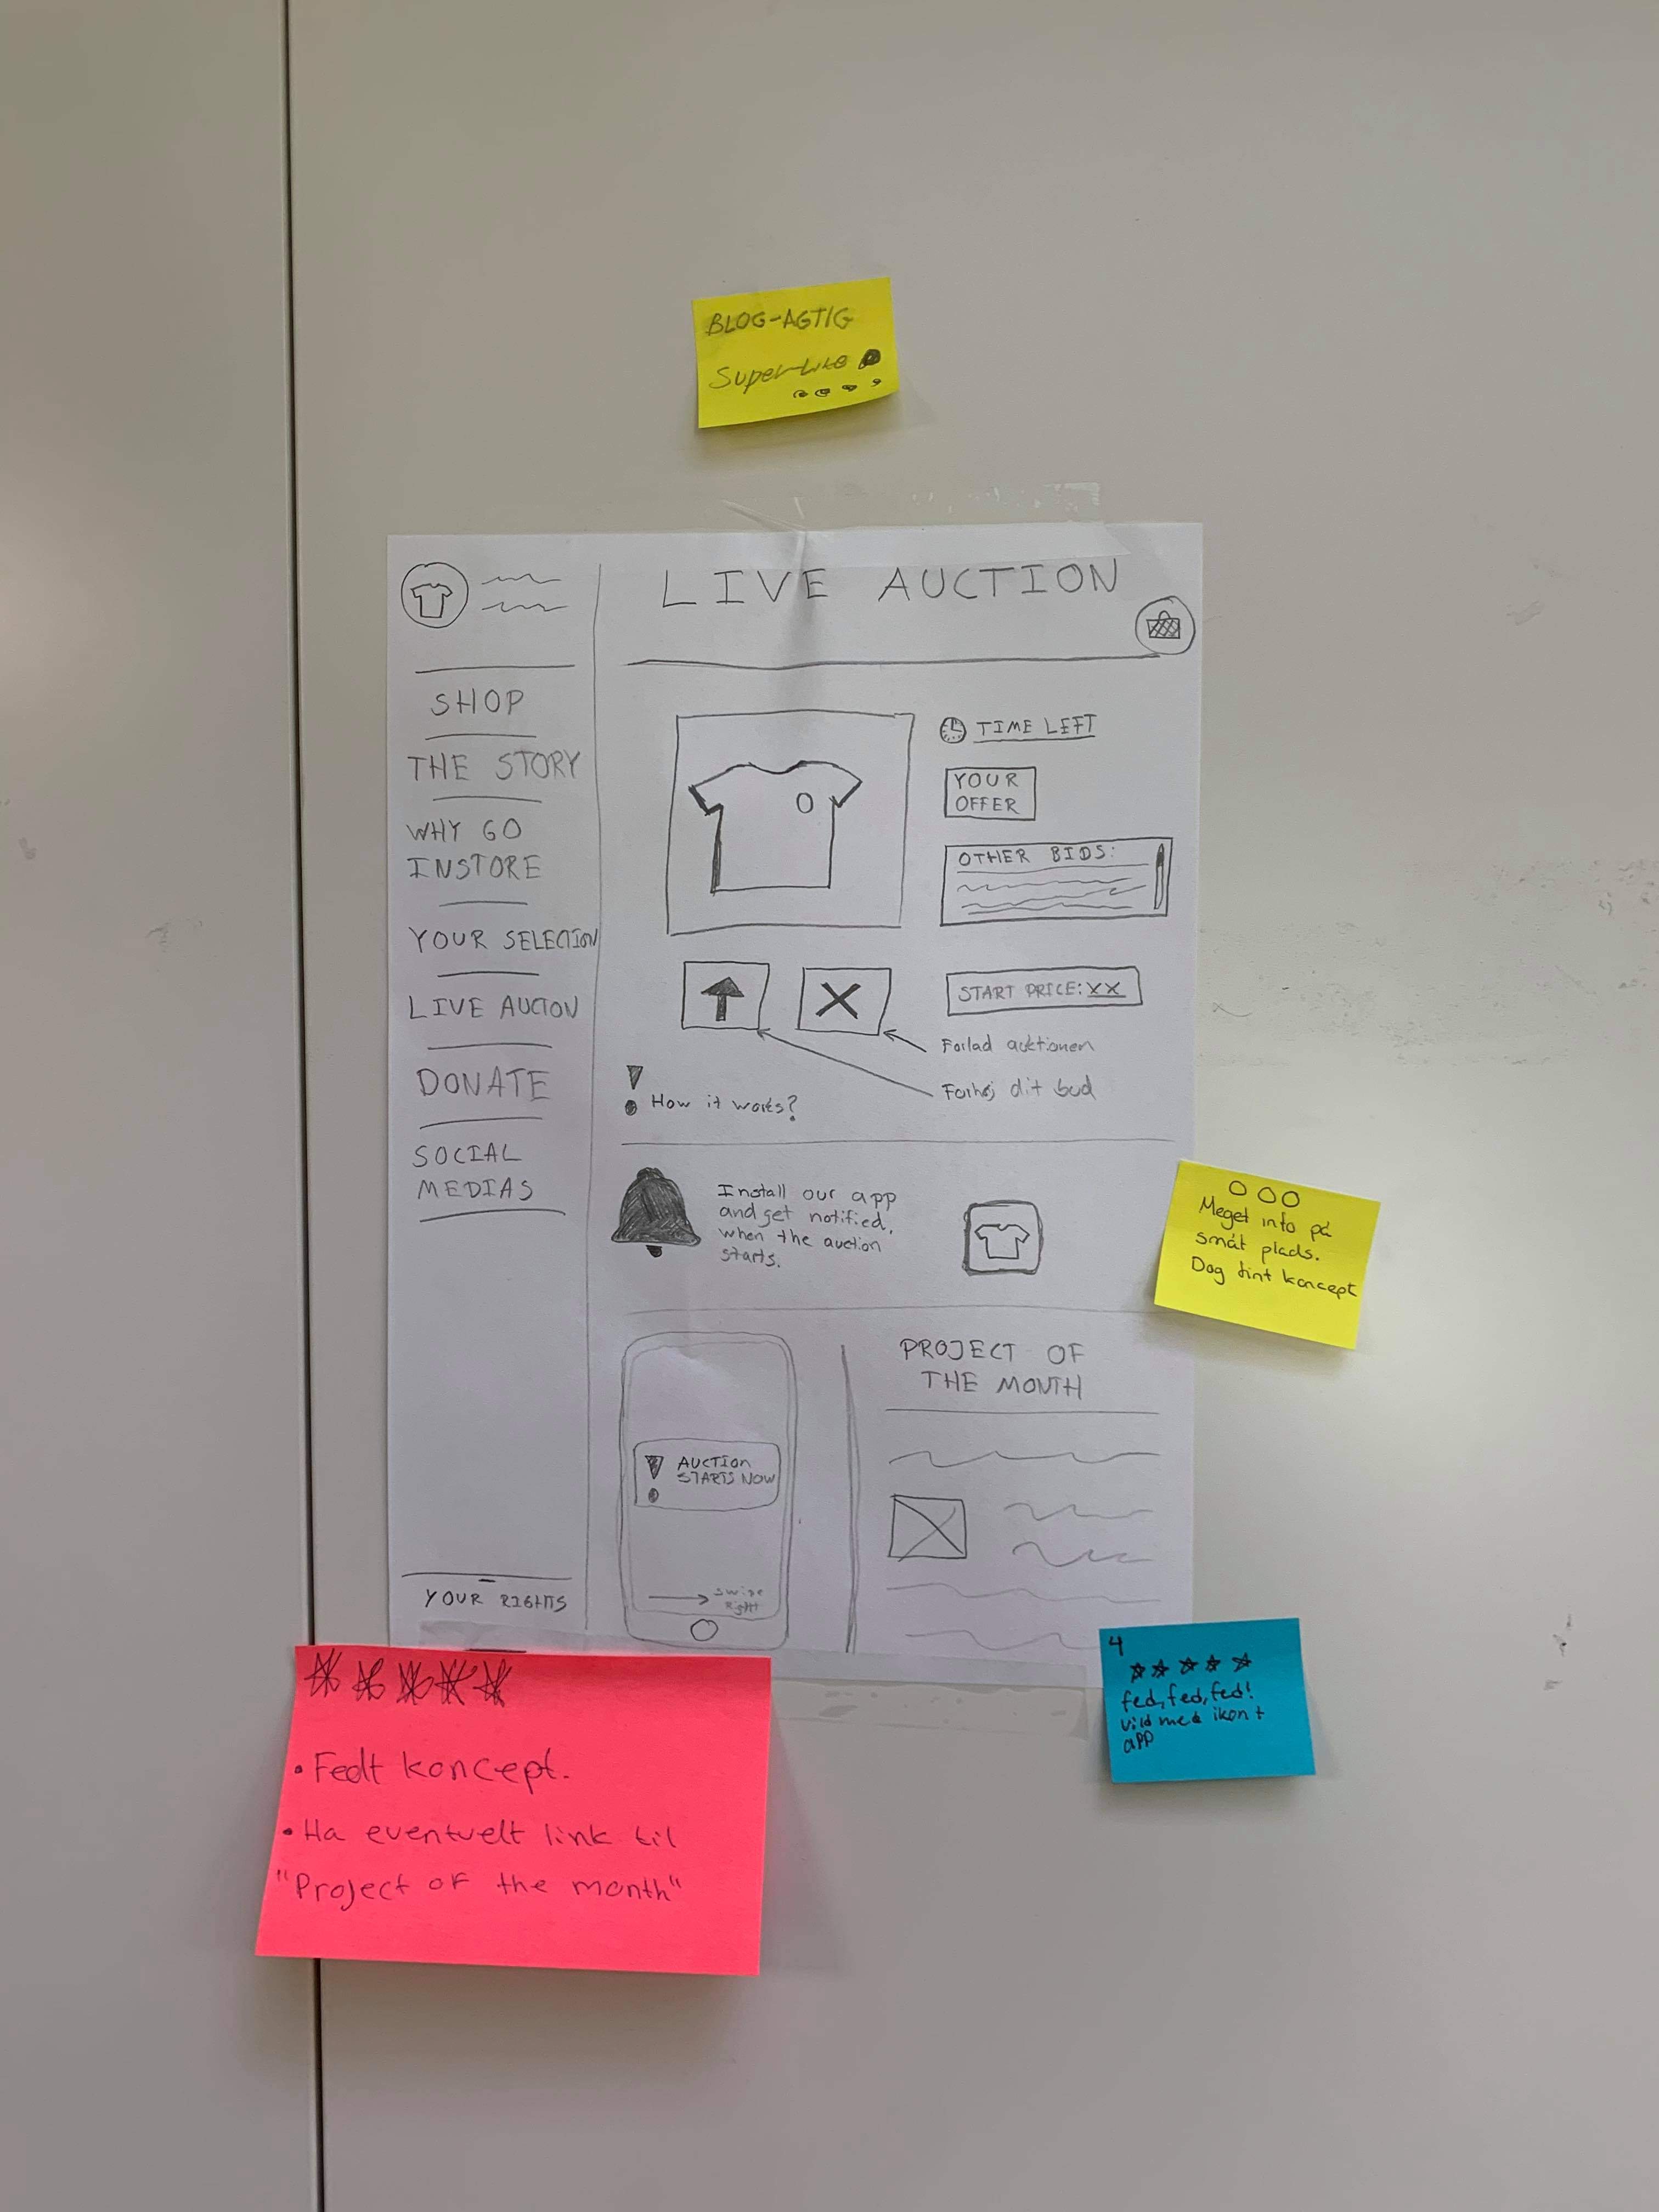 BLOG-AGTIG
Super-Like
LIVE AUCTION
SHOP
THE STORY
WHY GO
INSTORE
YOUR SELECTION
LIVE AUCTION
DONATE
SOCIAL
MEDIAS
YOUR RIGHTS
TIME LEFT
YOUR
OFFER
OTHER BIDS:
START PRICE: XX
Forlad auktionen
Forhøj dit bud
How it works?
Install our app
and get notified,
when the auction
starts.
AUCTION
STARTS NOW
swipe
Right
PROJECT OF
THE MONTH
Meget info på
småt plads.
Dog fint koncept
4
fed, fed, fed!
vild med ikon +
app
• Fedt koncept.
• Ha eventuelt link til
"Project of the month"